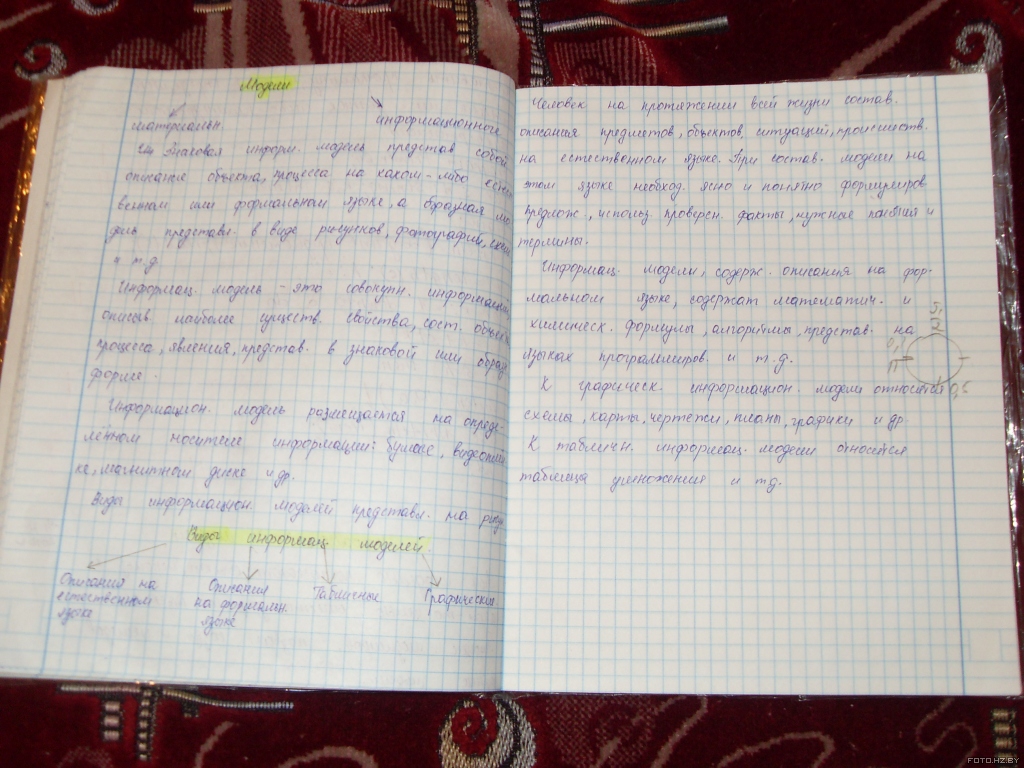 Модели
материальн. информационные
Знаковая информ. модель представ собой
описания объекта, процесса на каком-либо естест
венном или формальном языке, а образная мо
дель представл. в виде рисунков, фотографий, схем
и т.д
Информац. модель - это совокупн. информации,
описыв. наиболее существ. свойства, сост. объекта
процесса, явления, представ. в знаковой или образ
форме.
Информацион. модель размещается на опреде-
лённом носителе информации: бумаге, видеоплён
ке, магнитном диске и др.
Виды информацион. моделей представл. на рису
Виды информац. моделей.
Описания на естественном языке
Описания на формальн. языке
Табличные
Графические
Человек на протяжении всей жизни состав.
описания предметов, объектов, ситуаций, происшеств.
на естественном языке. При состав. модели на
этом языке необход. ясно и понятно формулиров
предлож., использ. проверен. факты, нужные понятия и
термины.
Информац. модели, содерж. описания на фор-
мальном языке, содержат математич. и
химическ. формулы, алгоритмы, представ. на
языках программиров. и т.д.
К графическ. информацион. модели относятся
схемы, карты, чертежи, планы, графики и др
К табличн. информац. модели относятся
таблица умножения и т.д.
FOTO.HZ.BY